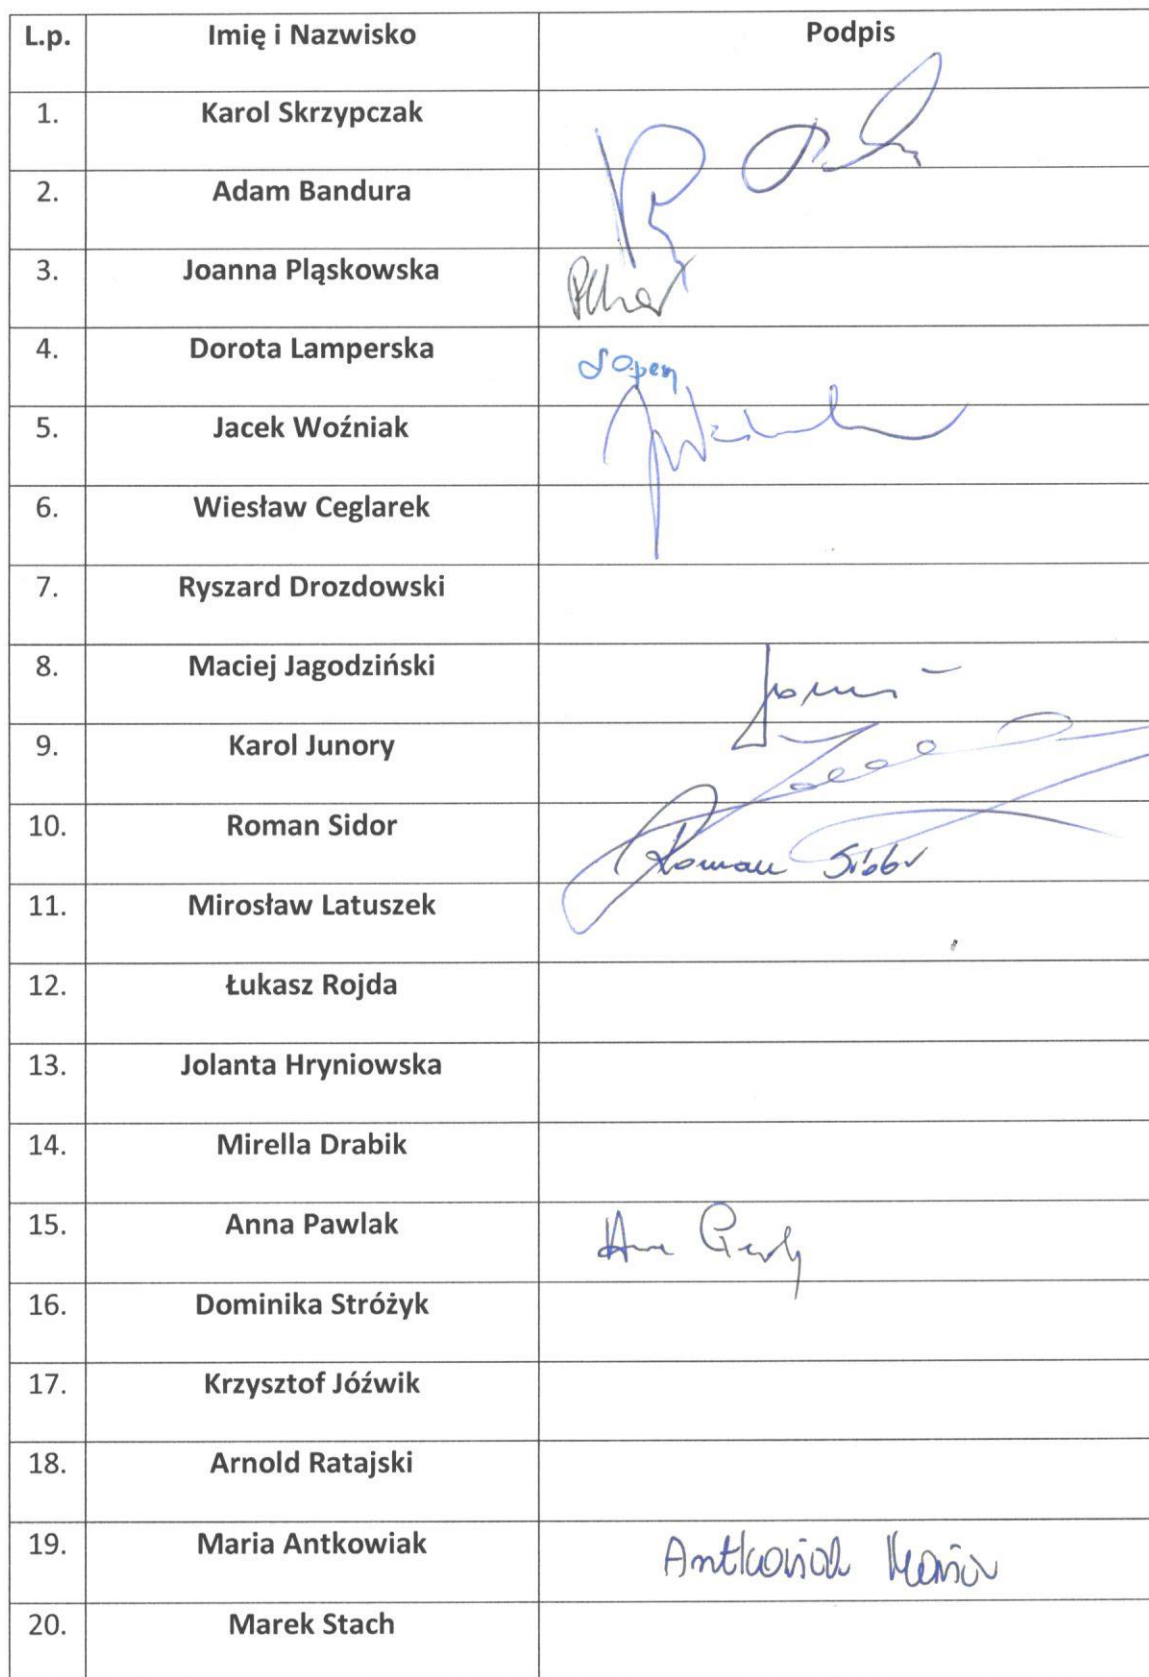 L.p. Imię i Nazwisko Podpis
1. Karol Skrzypczak
2. Adam Bandura
3. Joanna Pląskowska
4. Dorota Lamperska
5. Jacek Woźniak
6. Wiesław Ceglarek
7. Ryszard Drozdowski
8. Maciej Jagodziński
9. Karol Junory
10. Roman Sidor Roman Sidor
11. Mirosław Latuszek
12. Łukasz Rojda
13. Jolanta Hryniowska
14. Mirella Drabik
15. Anna Pawlak
16. Dominika Stróżyk
17. Krzysztof Jóźwik
18. Arnold Ratajski
19. Maria Antkowiak Antkowiak Maria
20. Marek Stach